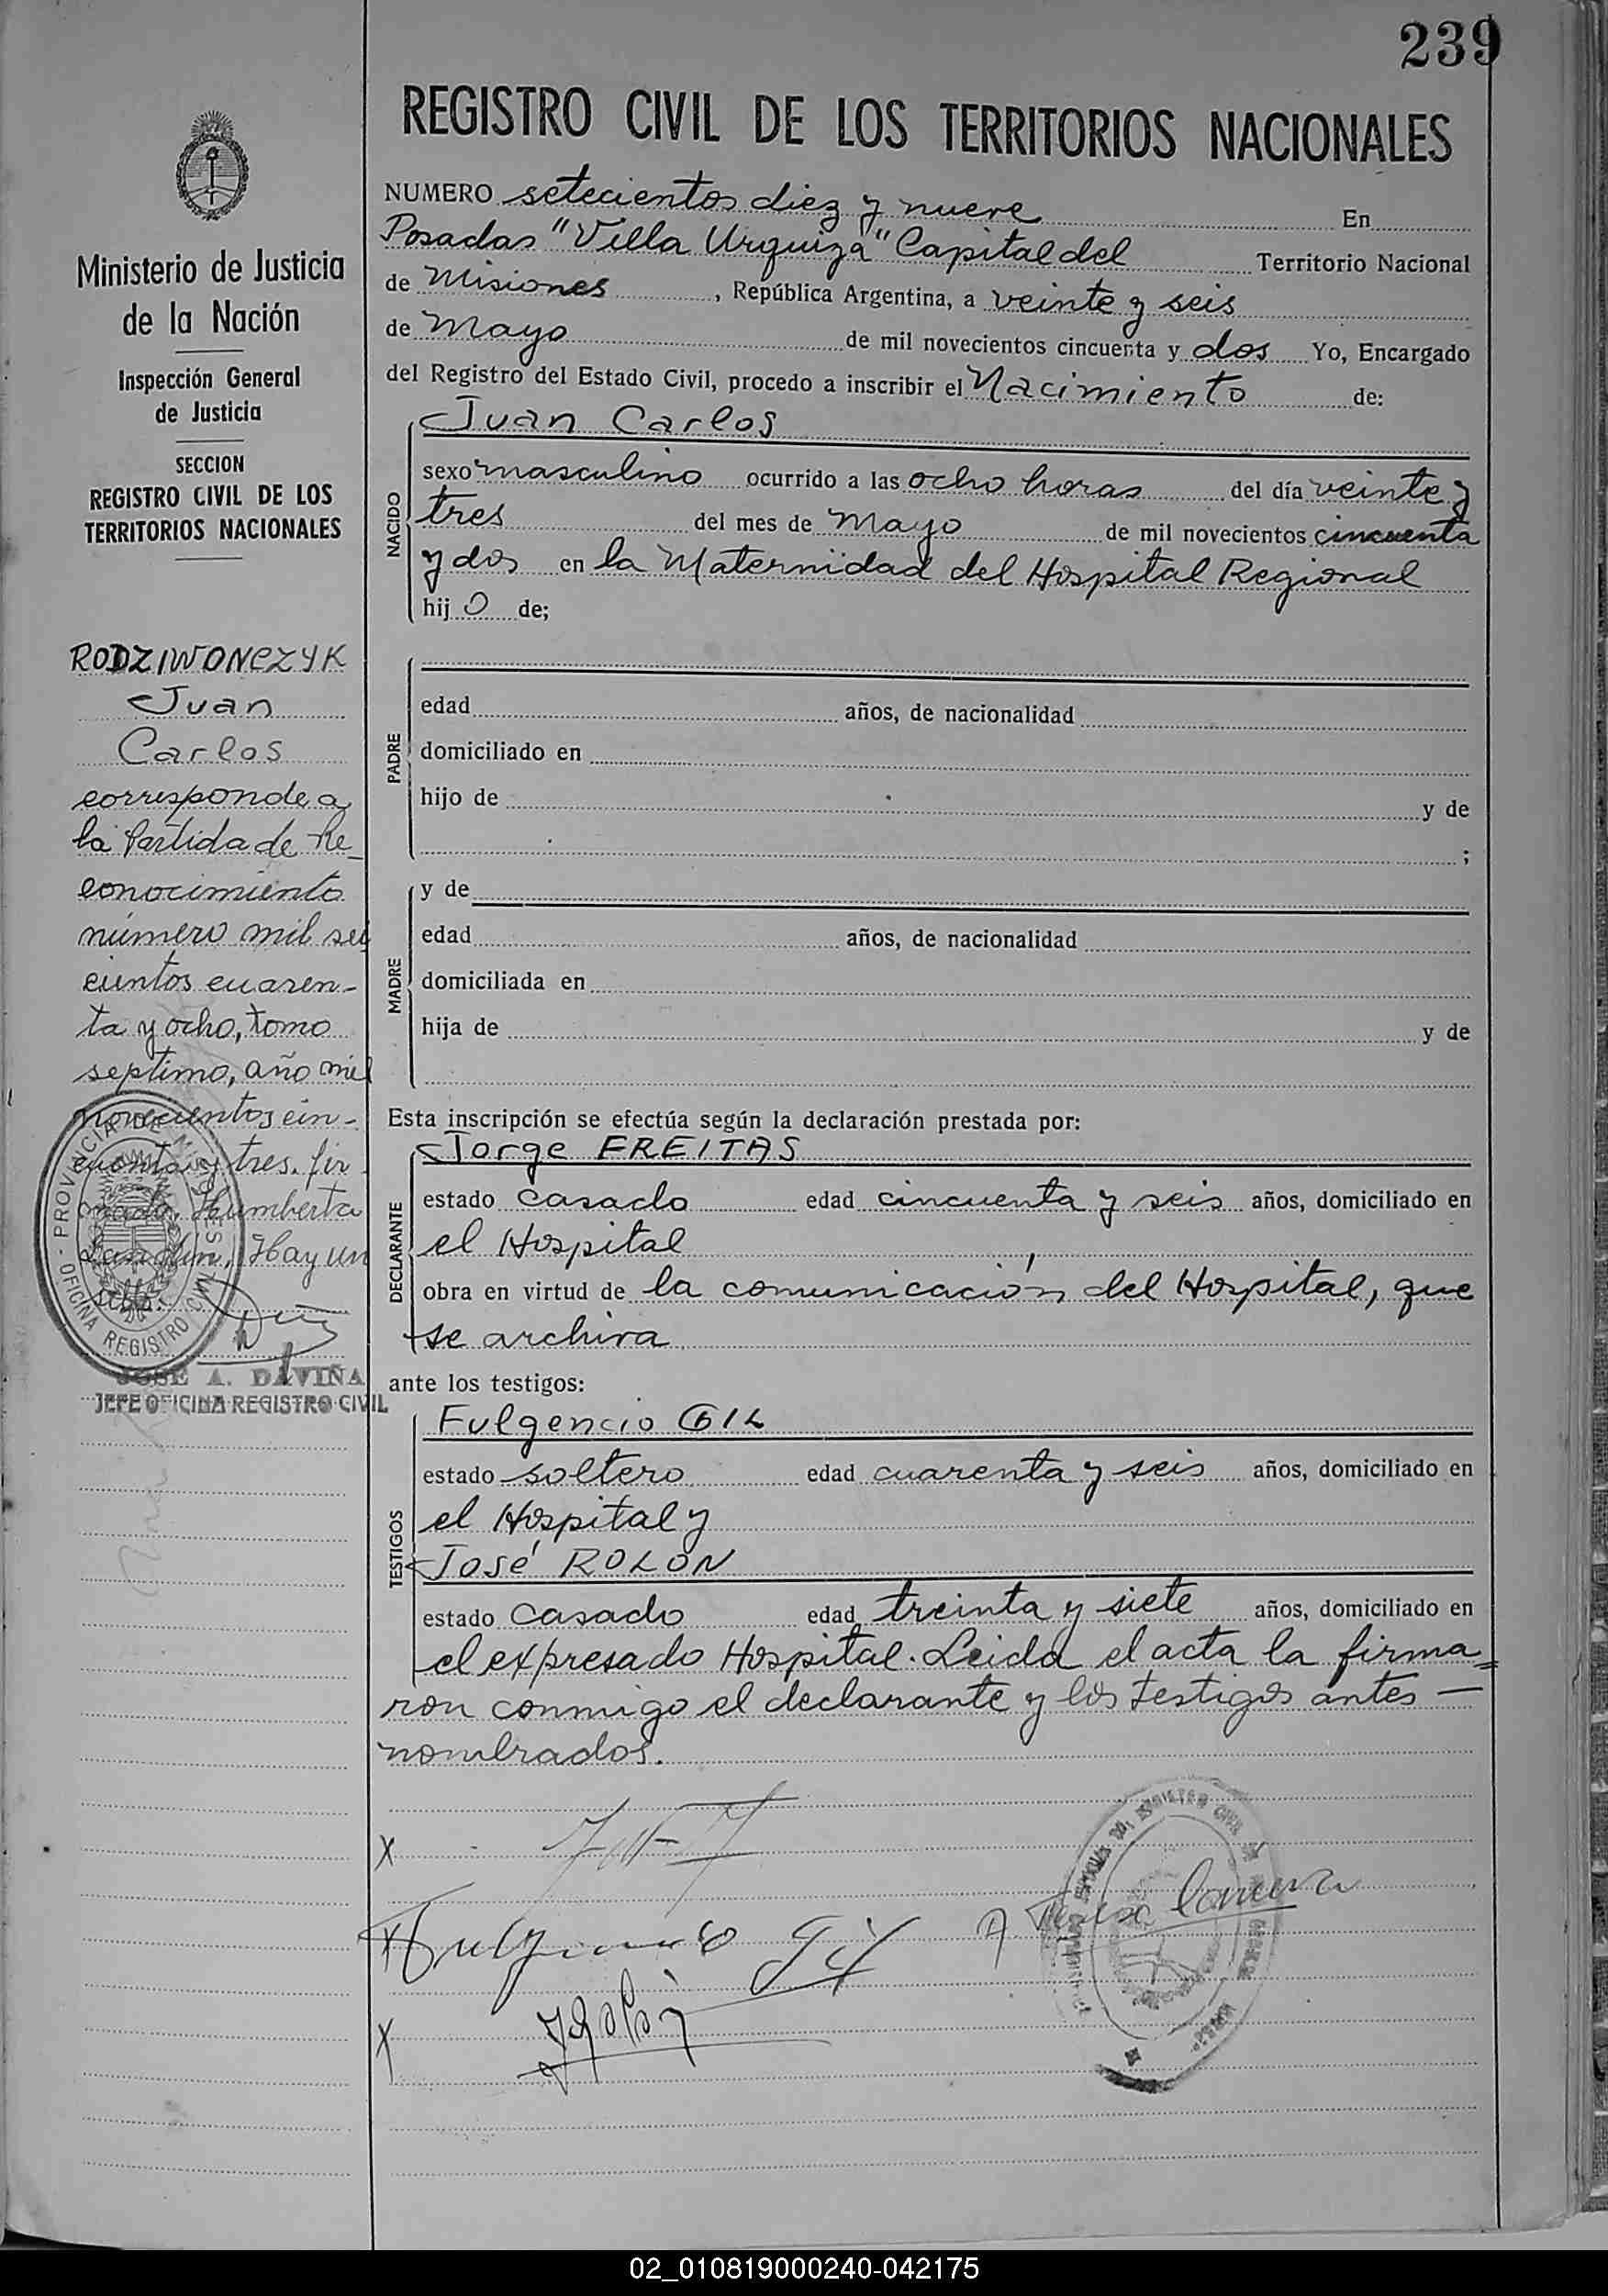 239
REGISTRO CIVIL DE LOS TERRITORIOS NACIONALES
Ministerio de Justicia
de la Nación
Inspección General
de Justicia
SECCION
REGISTRO CIVIL DE LOS
TERRITORIOS NACIONALES
RODZIWONCZYK
Juan
Carlos
corresponde a
la Partida de Re-
conocimiento
número mil seis
cientos cuaren-
ta y ocho, tomo
septimo, año mil
novecientos cin-
cuenta y tres. fir
mado. Humberto
Hay un
sello.
PROVINCIA DE MISIONES
OFICINA REGISTRO CIVIL
JOSE A. DAVIÑA
JEFE OFICINA REGISTRO CIVIL
NUMERO setecientos diez y nueve En
Posadas "Villa Urquiza" Capital del Territorio Nacional
de Misiones, República Argentina, a veinte y seis
de Mayo de mil novecientos cincuenta y dos Yo, Encargado
del Registro del Estado Civil, procedo a inscribir el Nacimiento de:
NACIDO
Juan Carlos
sexo masculino ocurrido a las ocho horas del día veinte y
tres del mes de Mayo de mil novecientos cincuenta
y dos en la Maternidad del Hospital Regional
hijo de;
PADRE
edad años, de nacionalidad
domiciliado en
hijo de y de
;
MADRE
y de
edad años, de nacionalidad
domiciliada en
hija de y de
Esta inscripción se efectúa según la declaración prestada por:
DECLARANTE
Jorge FREITAS
estado casado edad cincuenta y seis años, domiciliado en
el Hospital
obra en virtud de la comunicación del Hospital, que
se archiva
ante los testigos:
TESTIGOS
Fulgencio GIL
estado soltero edad cuarenta y seis años, domiciliado en
el Hospital y
José ROLON
estado casado edad treinta y siete años, domiciliado en
el expresado Hospital. Leida el acta la firma=
ron conmigo el declarante y los testigos antes —
nombrados.
X
X Fulgencio Gil
X JRolón
02_010819000240-042175